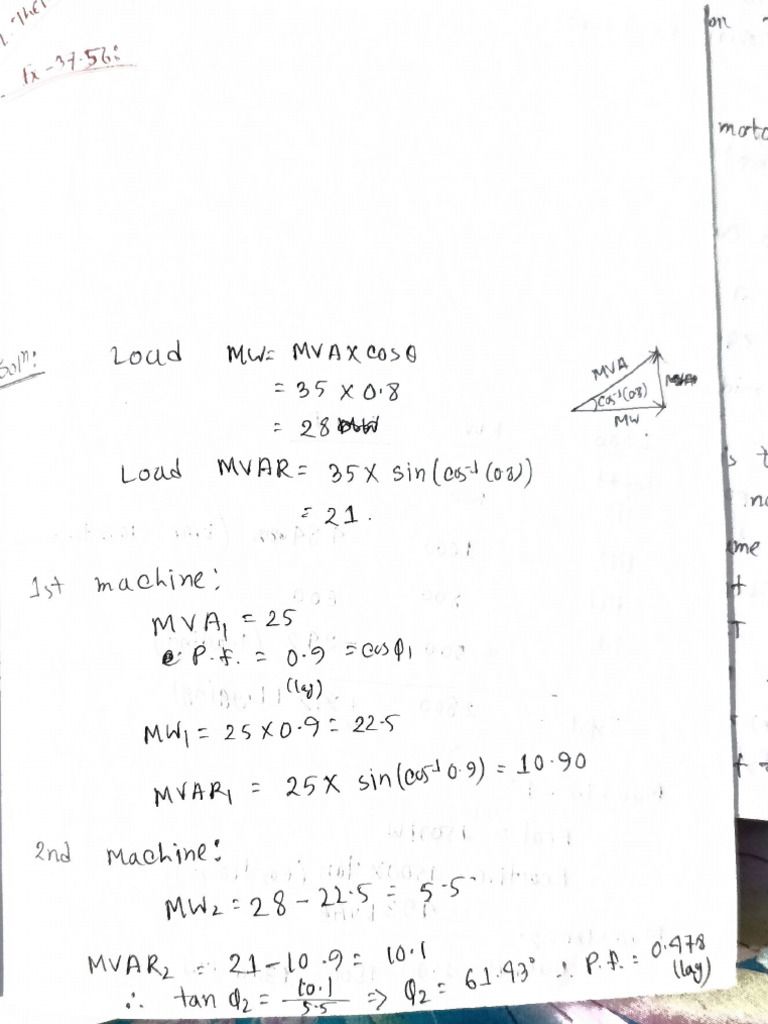 Ex-37.56:
Soln:
Load MW = MVA X cosθ
= 35 X 0.8
= 28
MVA
cos⁻¹(0.8)
MW
Load MVAR = 35 X sin(cos⁻¹(0.8))
= 21.
1st machine:
MVA₁ = 25
P.f. = 0.9 = cosφ₁
(lag)
MW₁ = 25 X 0.9 = 22.5
MVAR₁ = 25 X sin(cos⁻¹ 0.9) = 10.90
2nd Machine:
MW₂ = 28 - 22.5 = 5.5
MVAR₂ = 21-10.9 = 10.1
∴ tan φ₂ = 10.1/5.5 => φ₂ = 61.43° ∴ P.f. = 0.478
(lag)
on
moto